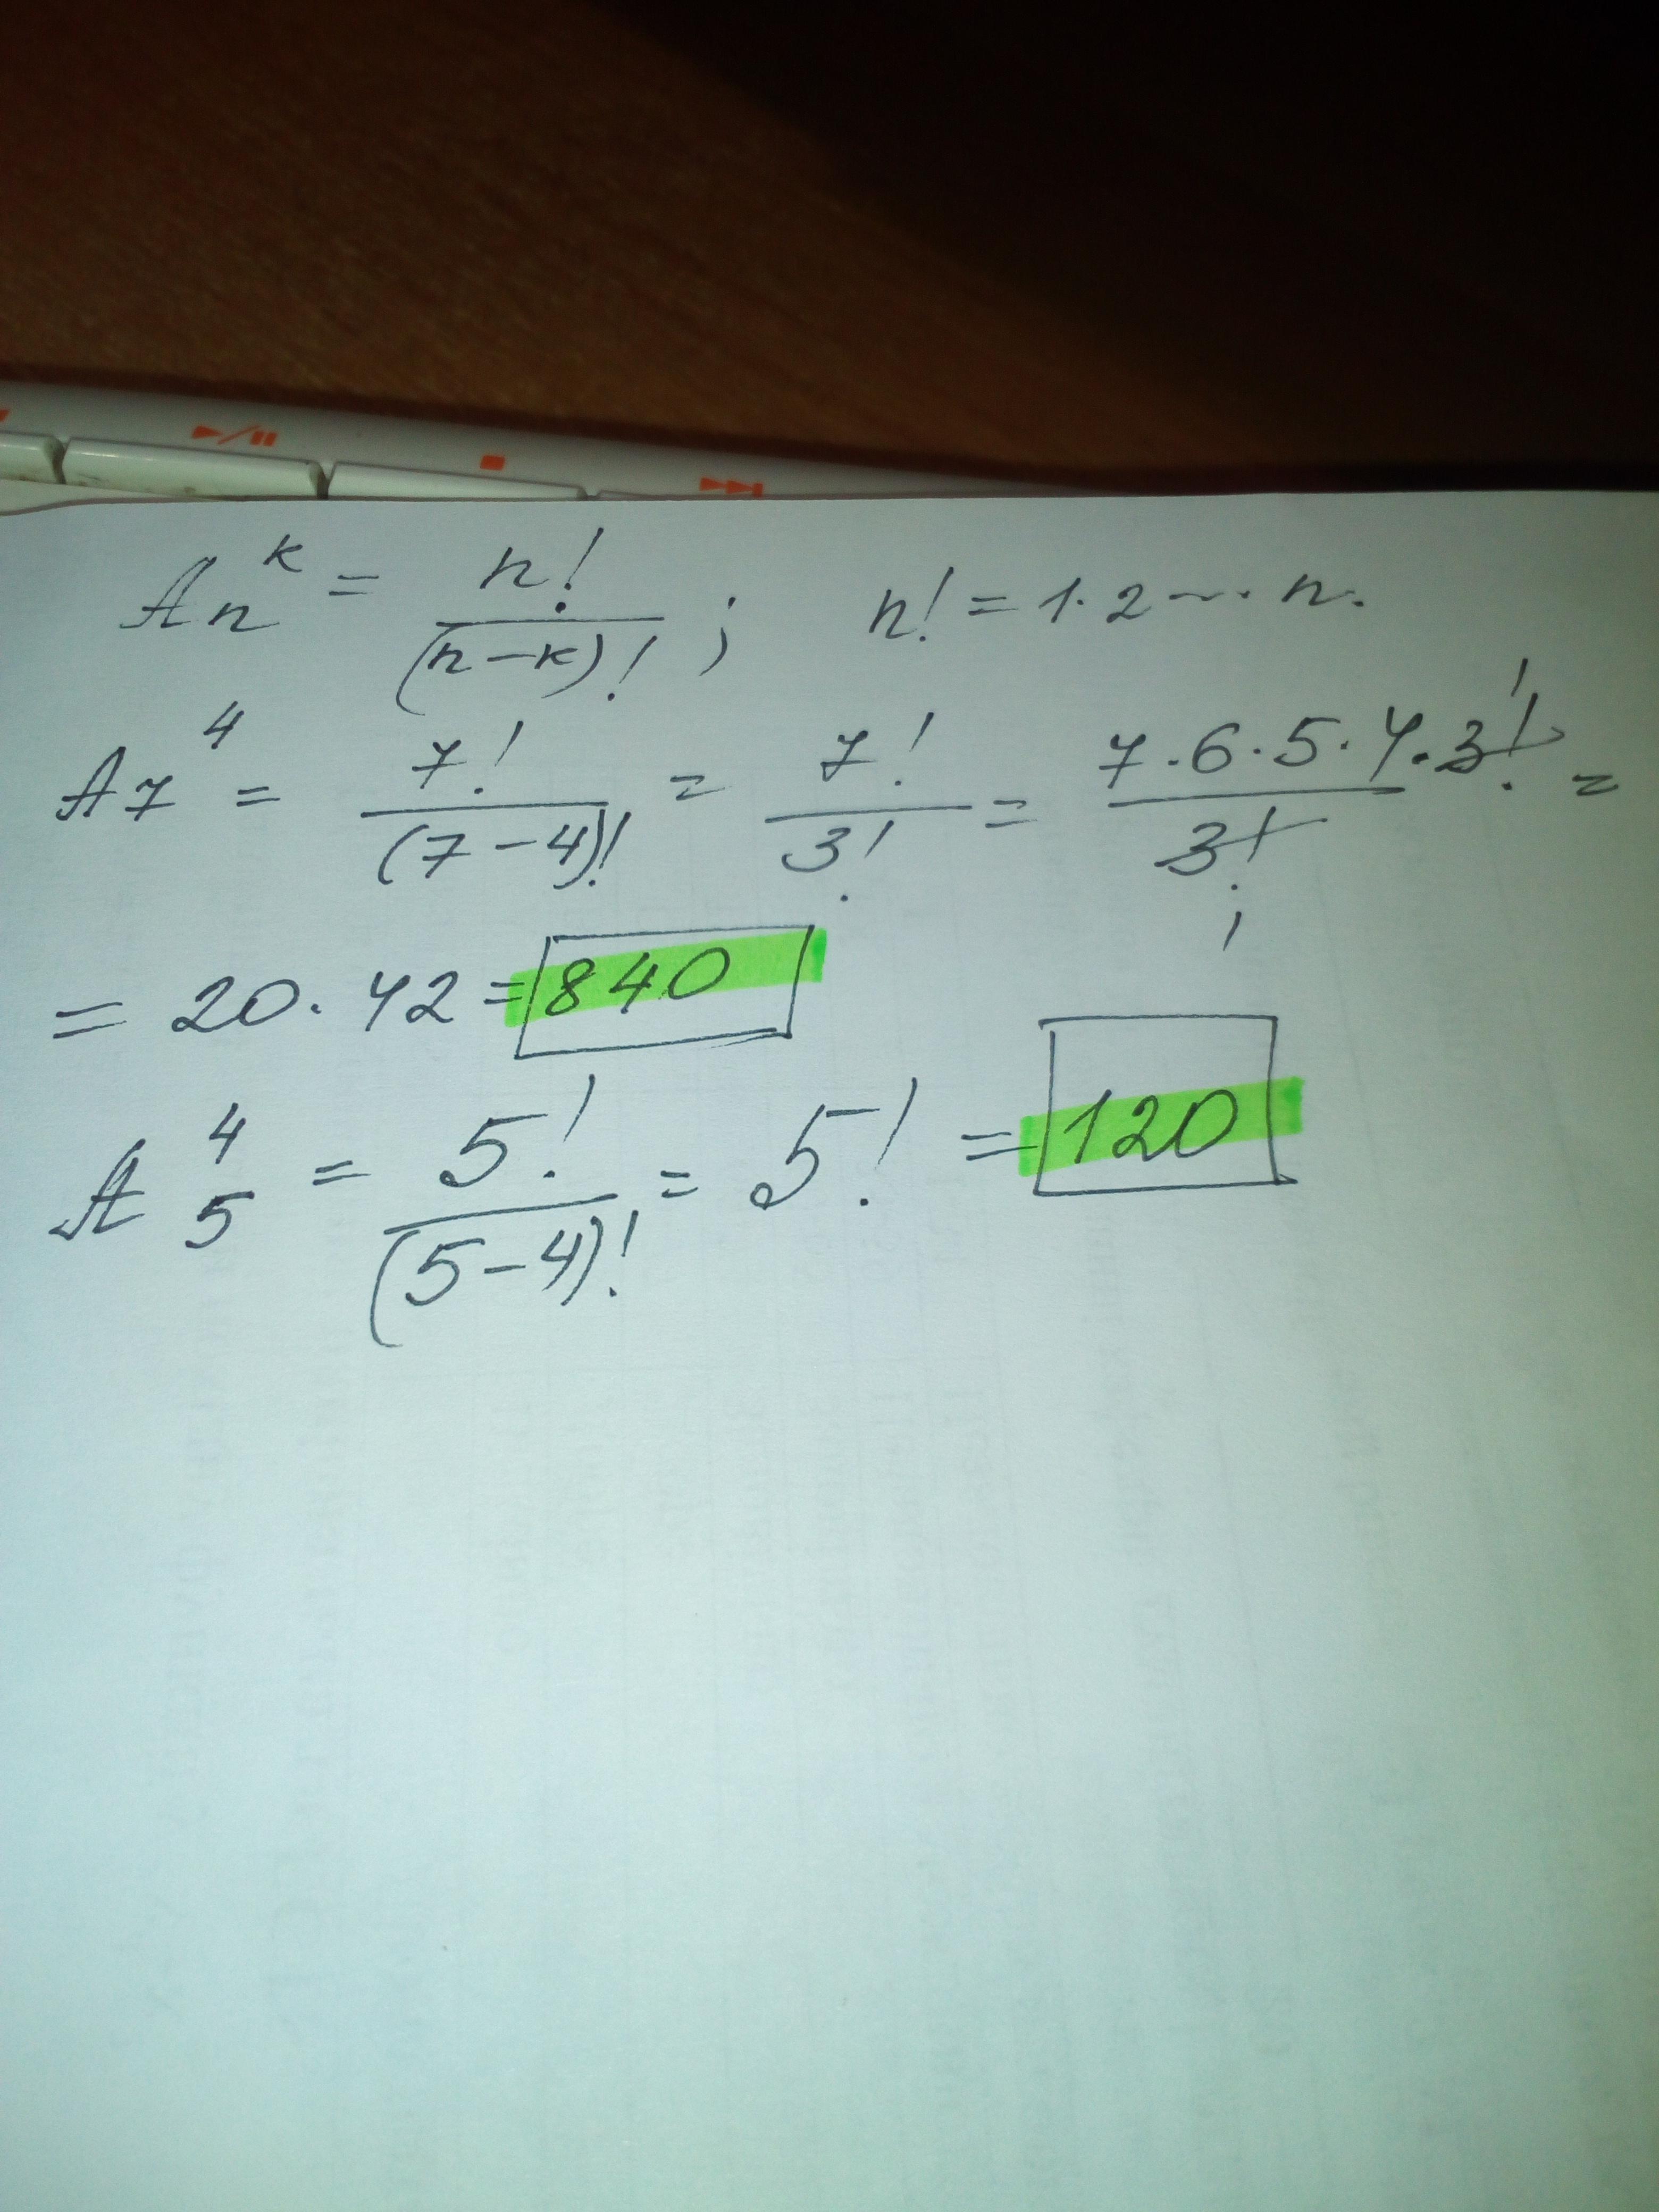 Aₙᵏ = n!/(n-к)! ; n! = 1·2...·n.
A₇⁴ = 7!/(7-4)! = 7!/3! = 7·6·5·4·3!/3! =
= 20·42 = 840
A₅⁴ = 5!/(5-4)! = 5! = 120